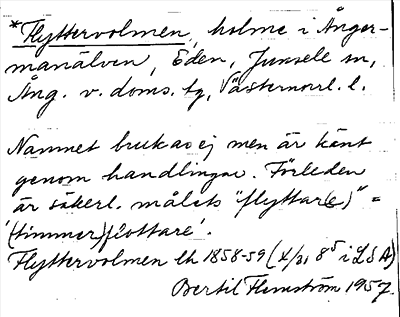 *Flyttervolmen, holme i Ånger-
manälven, Eden, Junsele sn,
Ång. v. doms. tg, Västernorrl. l.
Namnet brukas ej men är känt
genom handlingar. Förleden
är säkerl. målets "flyttar(e)" =
'(timmer)flottare'.
Flyttervolmen lh 1858-59 (X/31 8⁵ i LSA)
Bertil Flemström 1957.